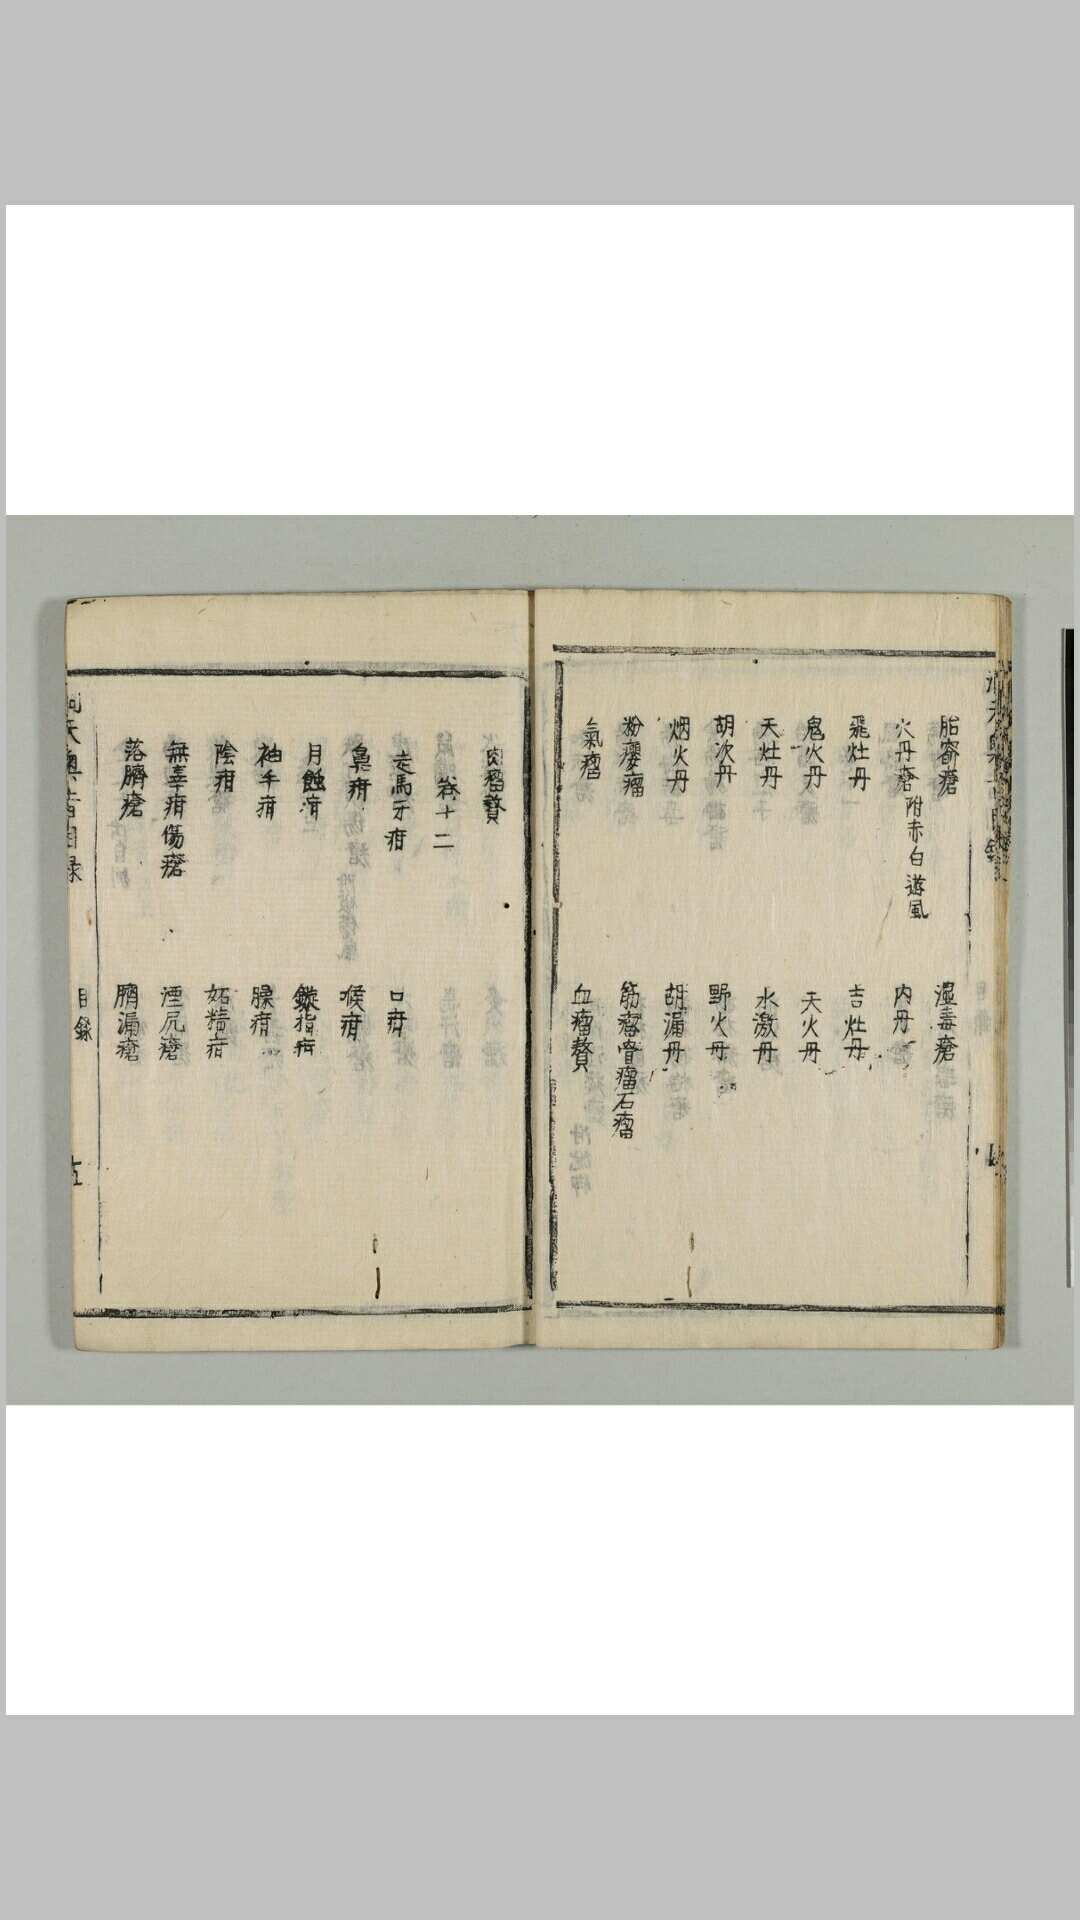 胎窬瘡
湿毒瘡
火丹瘡附赤白遊風
内丹
飛灶丹
吉灶丹
鬼火丹
天火丹
天灶丹
水激丹
胡次丹
野火丹
烟火丹
胡漏丹
粉癭瘤
筋瘤骨瘤石瘤
氣瘤
血瘤贅
肉瘤贅
卷十二
走馬牙疳
口疳
鼻疳
喉疳
月蝕疳
鏇指疳
袖手疳
臊疳
陰疳
妬精疳
無辜疳傷瘡
湮尻瘡
落臍瘡
臍漏瘡
洞天奧旨目録
目錄
五